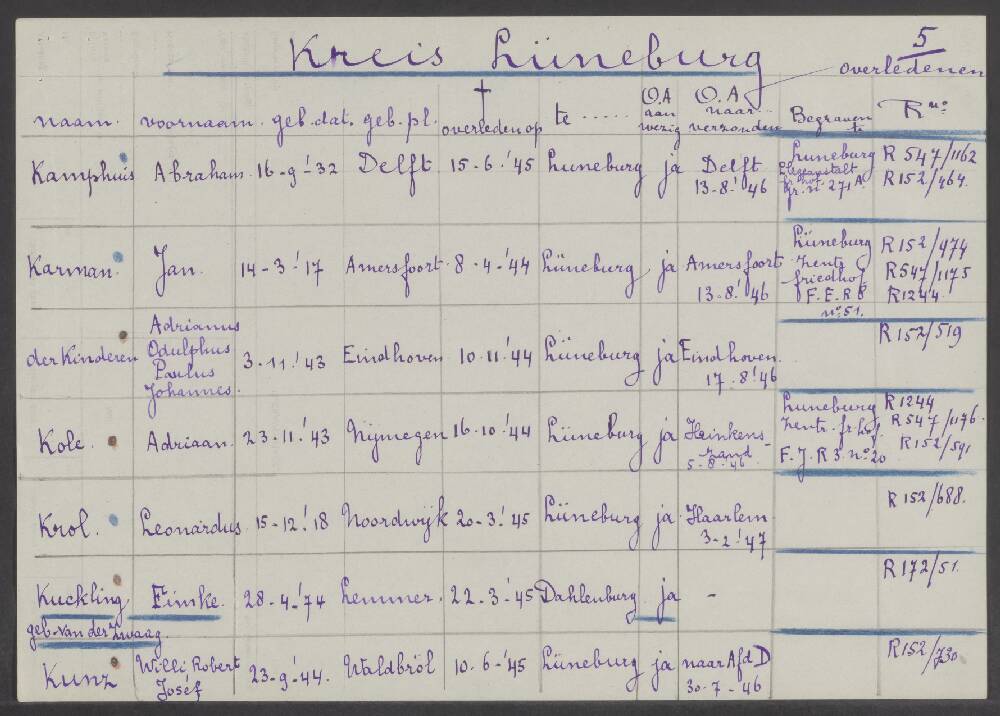 Kreis Lüneburg
5
overledenen
naam. voornaam. geb. dat. geb. pl. † overleden op te ..... O.A aan wezig O.A. naar verzonden Begraven te R no.
Kamphuis Abraham 16-9-'32 Delft 15-6-'45 Luneburg ja Delft 13-8-'46 Luneburg gr. no 271 A. R 547/1162 R 152/464.
Karman. Jan. 14-3-'17 Amersfoort 8-4-'44 Lüneburg ja Amersfoort 13-8-'46 Lüneburg Zentr. friedhof F. E. R 8 no. 51. R 152/474 R 547/1175 R 1244.
der Kinderen Adrianus Odulphus Paulus Johannes. 3-11-'43 Eindhoven 10-11-'44 Lüneburg ja Eindhoven. 17-8-'46 R 152/519
Kole. Adriaan. 23-11-'43 Nijmegen 16-10-'44 Lüneburg ja Heinkens-zand 5-8-'46 Luneburg Zentr. fr. hof. F. J. R 3. no 20 R 1244 R 547/1176. R 152/591
Krol. Leonardus. 15-12-'18 Noordwijk 20-3-'45 Lüneburg ja. Haarlem. 3-2-'47 R 152/688.
Kuckling geb. van der Zwaag. Fimke. 28-4-'74 Lemmer. 22-3-'45 Dahlenburg ja - R 172/51.
Kunz Willi Robert Joséf 23-9-'44. Waldbröl 10-6-'45 Lüneburg ja naar Afd D 30-7-46 R 152/730.